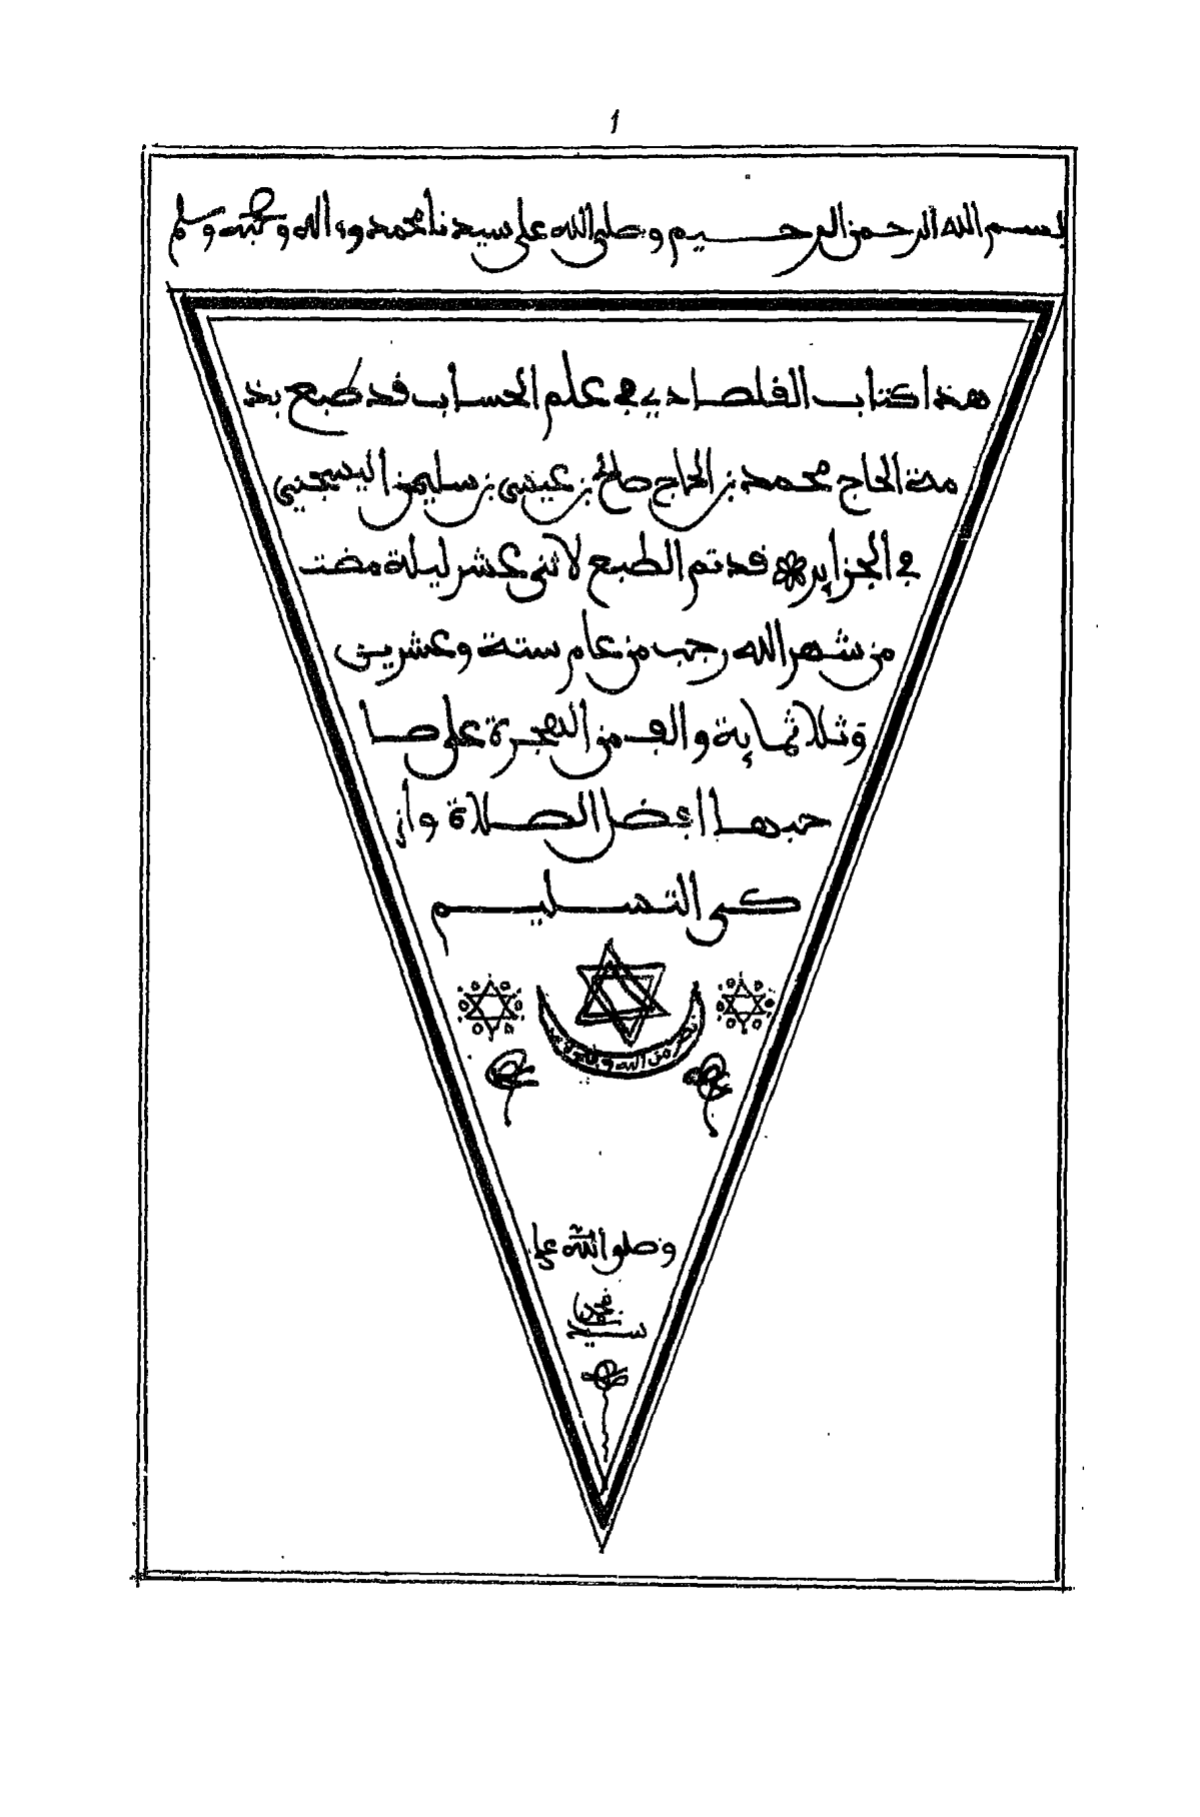 1
بسم الله الرحمن الرحيم وصلى الله على سيدنا محمد وءاله وصحبه وسلم
هذا كتاب القلصادي في علم الحساب قد طبع بخد
مة الحاج محمد بن الحاج صالح بن عيسى بن سليمن اليسجني
في الجزاير قد تم الطبع لاثنى عشر ليلة مضت
من شهر الله رجب من عام ستة وعشرين
وثلاثماية والف من الهجرة على صا
حبها افضل الصلاة وأز
كى التسليم
نصر من الله و
وصلى الله على
سيد